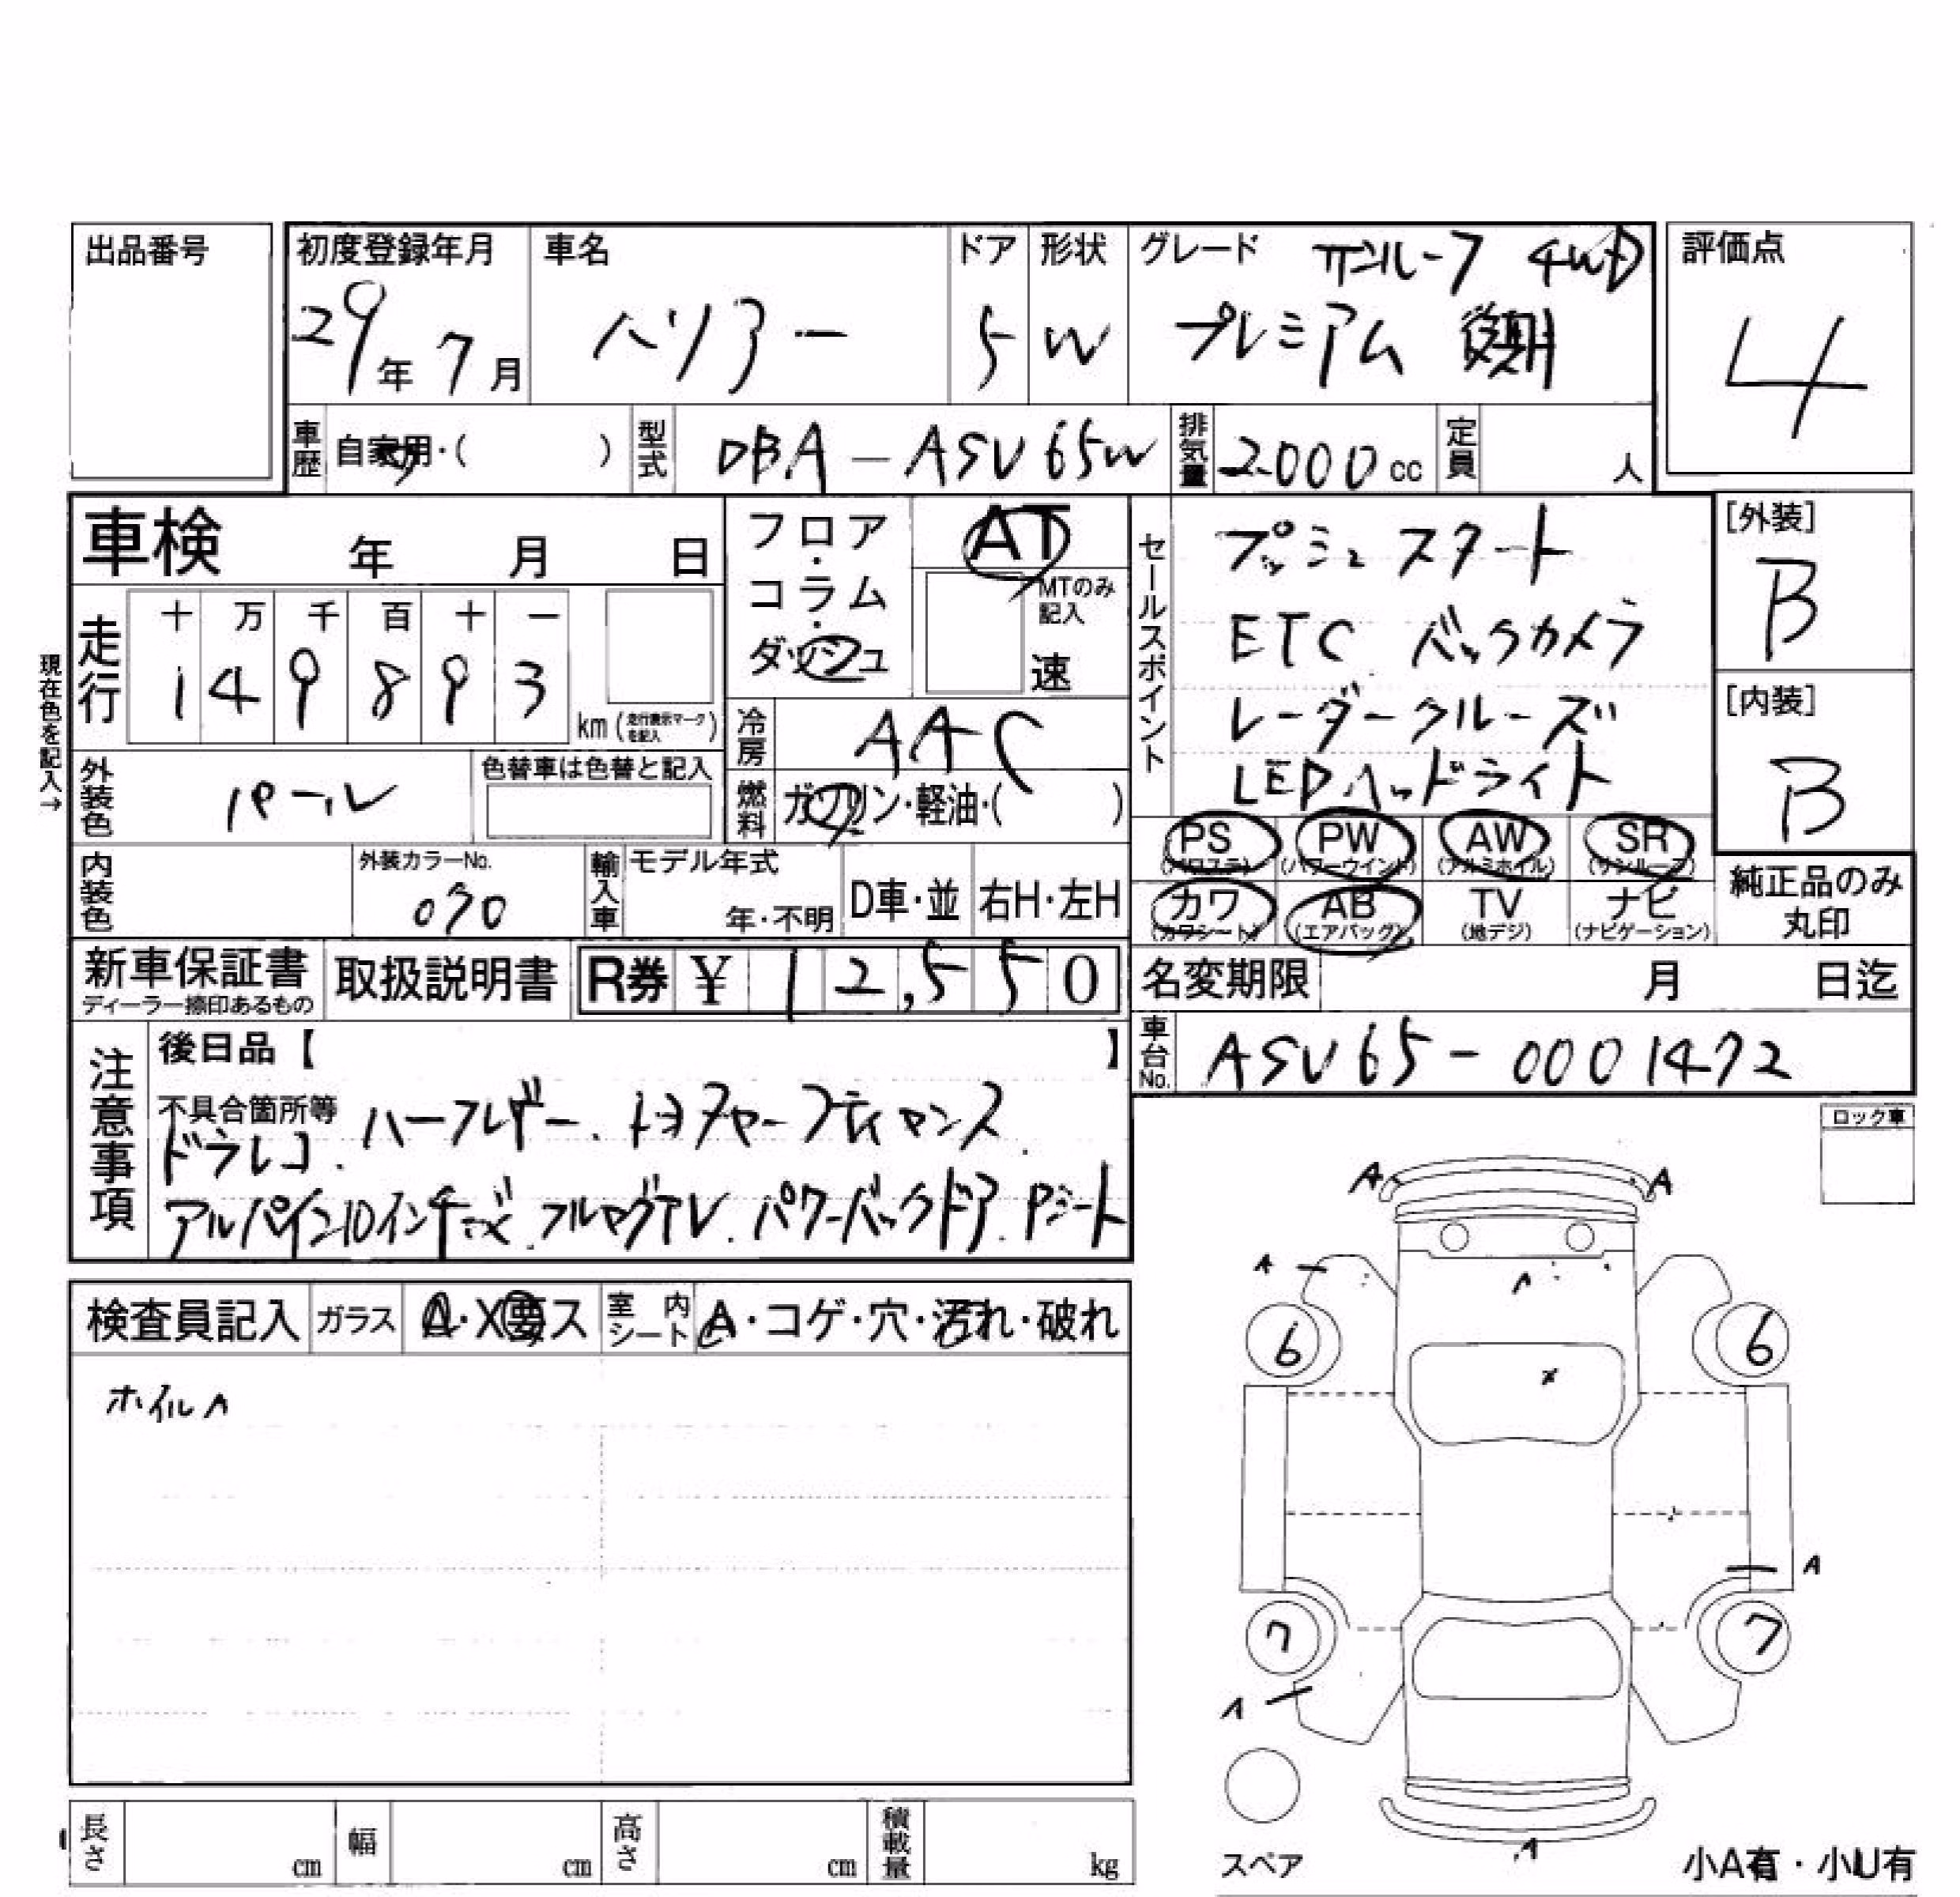 出品番号
初度登録年月 車名 ドア 形状 グレード サンルーフ 4WD 評価点
29年 7月 ハリアー 5 W プレミアム 後期 4
車歴 自家用・( ) 型式 DBA-ASU65W 排気量 2000cc 定員 人
車検 年 月 日
フロア・コラム・ダッシュ
AT
MTのみ記入
速
走行 十 万 千 百 十 一
1 4 9 8 9 3
km (走行表示マークを記入)
現在色を記入→
冷房 AAC
外装色 パール 色替車は色替と記入
燃料 ガソリン・軽油・( )
内装色 外装カラーNo. 070 輸入車 モデル年式 年・不明 D車・並 右H・左H
セールスポイント
プッシュスタート
ETC バックカメラ
レーダークルーズ
LEDヘッドライト
[外装]
B
[内装]
B
PS (パワステ) PW (パワーウインド) AW (アルミホイル) SR (サンルーフ)
カワ (カワシート) AB (エアバッグ) TV (地デジ) ナビ (ナビゲーション)
純正品のみ丸印
新車保証書 ディーラー捺印あるもの 取扱説明書 R券 ¥ 12,550
名変期限 月 日迄
車台No. ASU65-0001472
注意事項
後日品【 】
不具合箇所等 ハーフレザー、
ドラレコ、
アルパイン10インチナビ、フルセグTV、パワーバックドア、Pシート
ロック車
検査員記入 ガラス A・X要ス 室内シート A・コゲ・穴・汚れ・破れ
ホイルA
A A
A A
6 6
X
A
7 7
A
A
スペア
小A有・小U有
長さ cm 幅 cm 高さ cm 積載量 kg